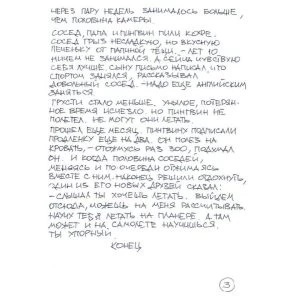 ЧЕРЕЗ ПАРУ НЕДЕЛЬ ЗАНИМАЛОСЬ БОЛЬШЕ,
ЧЕМ ПОЛОВИНА КАМЕРЫ.
СОСЕД, ПАПА И ПИНГВИН ПИЛИ КОФЕ.
СОСЕД ГРЫЗ НЕСЛАДКУЮ, НО ВКУСНУЮ
ПЕЧЕНЬКУ ОТ ПАПИНОЙ ТЁЩИ. -ЛЕТ 10
НИЧЕМ НЕ ЗАНИМАЛСЯ, А СЕЙЧАС ЧУВСТВУЮ
СЕБЯ ЛУЧШЕ. СЫНУ ПИСЬМО НАПИСАЛ ЧТО
СПОРТОМ ЗАНЯЛСЯ, РАССКАЗЫВАЛ
ДОВОЛЬНЫЙ СОСЕД. -НАДО ЕЩЁ АНГЛИЙСКИМ
ЗАНЯТЬСЯ.
ГРУСТИ СТАЛО МЕНЬШЕ, УНЫЛОЕ, ПОТЕРЯН-
НОЕ ВРЕМЯ ИСЧЕЗЛО. НО ПИНГВИН НЕ
ПОЛЕТЕЛ. НЕ МОГУТ ОНИ ЛЕТАТЬ.
ПРОШЁЛ ЕЩЁ МЕСЯЦ. ПИНГВИНУ ПОДПИСАЛИ
ПРОДЛЁНКУ ЕЩЁ НА ДВА. ОН ПОЛЕЗ НА
КРОВАТЬ, -ОТОЖМУСЬ РАЗ 300, ПОДУМАЛ
ОН. И КОГДА ПОЛОВИНА СОСЕДЕЙ,
МЕНЯЯСЬ И ПО ОЧЕРЕДИ ОТЖИМАЯСЬ
ВМЕСТЕ С НИМ, НАКОНЕЦ РЕШИЛИ ОТДОХНУТЬ,
ОДИН ИЗ ЕГО НОВЫХ ДРУЗЕЙ СКАЗАЛ:
-СЛЫШАЛ ТЫ ХОЧЕШЬ ЛЕТАТЬ. ВЫЙДЕМ
ОТСЮДА, МОЖЕШЬ НА МЕНЯ РАССЧИТЫВАТЬ.
НАУЧУ ТЕБЯ ЛЕТАТЬ НА ПЛАНЕРЕ. А ТАМ
МОЖЕТ И НА САМОЛЁТЕ НАУЧИШЬСЯ.
ТЫ УПОРНЫЙ.
КОНЕЦ
3